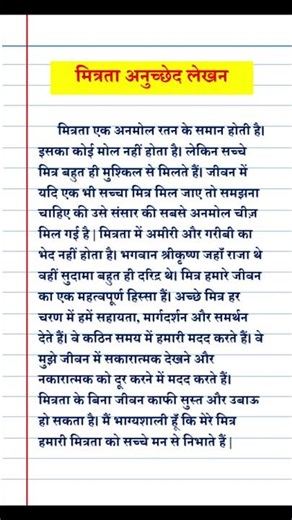 मित्रता अनुच्छेद लेखन
मित्रता एक अनमोल रतन के समान होती है।
इसका कोई मोल नहीं होता है। लेकिन सच्चे
मित्र बहुत ही मुश्किल से मिलते हैं। जीवन में
यदि एक भी सच्चा मित्र मिल जाए तो समझना
चाहिए की उसे संसार की सबसे अनमोल चीज़
मिल गई है | मित्रता में अमीरी और गरीबी का
भेद नहीं होता है। भगवान श्रीकृष्ण जहाँ राजा थे
वहीं सुदामा बहुत ही दरिद्र थे। मित्र हमारे जीवन
का एक महत्वपूर्ण हिस्सा हैं। अच्छे मित्र हर
चरण में हमें सहायता, मार्गदर्शन और समर्थन
देते हैं। वे कठिन समय में हमारी मदद करते हैं। वे
मुझे जीवन में सकारात्मक देखने और
नकारात्मक को दूर करने में मदद करते हैं।
मित्रता के बिना जीवन काफी सुस्त और उबाऊ
हो सकता है। मैं भाग्यशाली हूँ कि मेरे मित्र
हमारी मित्रता को सच्चे मन से निभाते हैं |